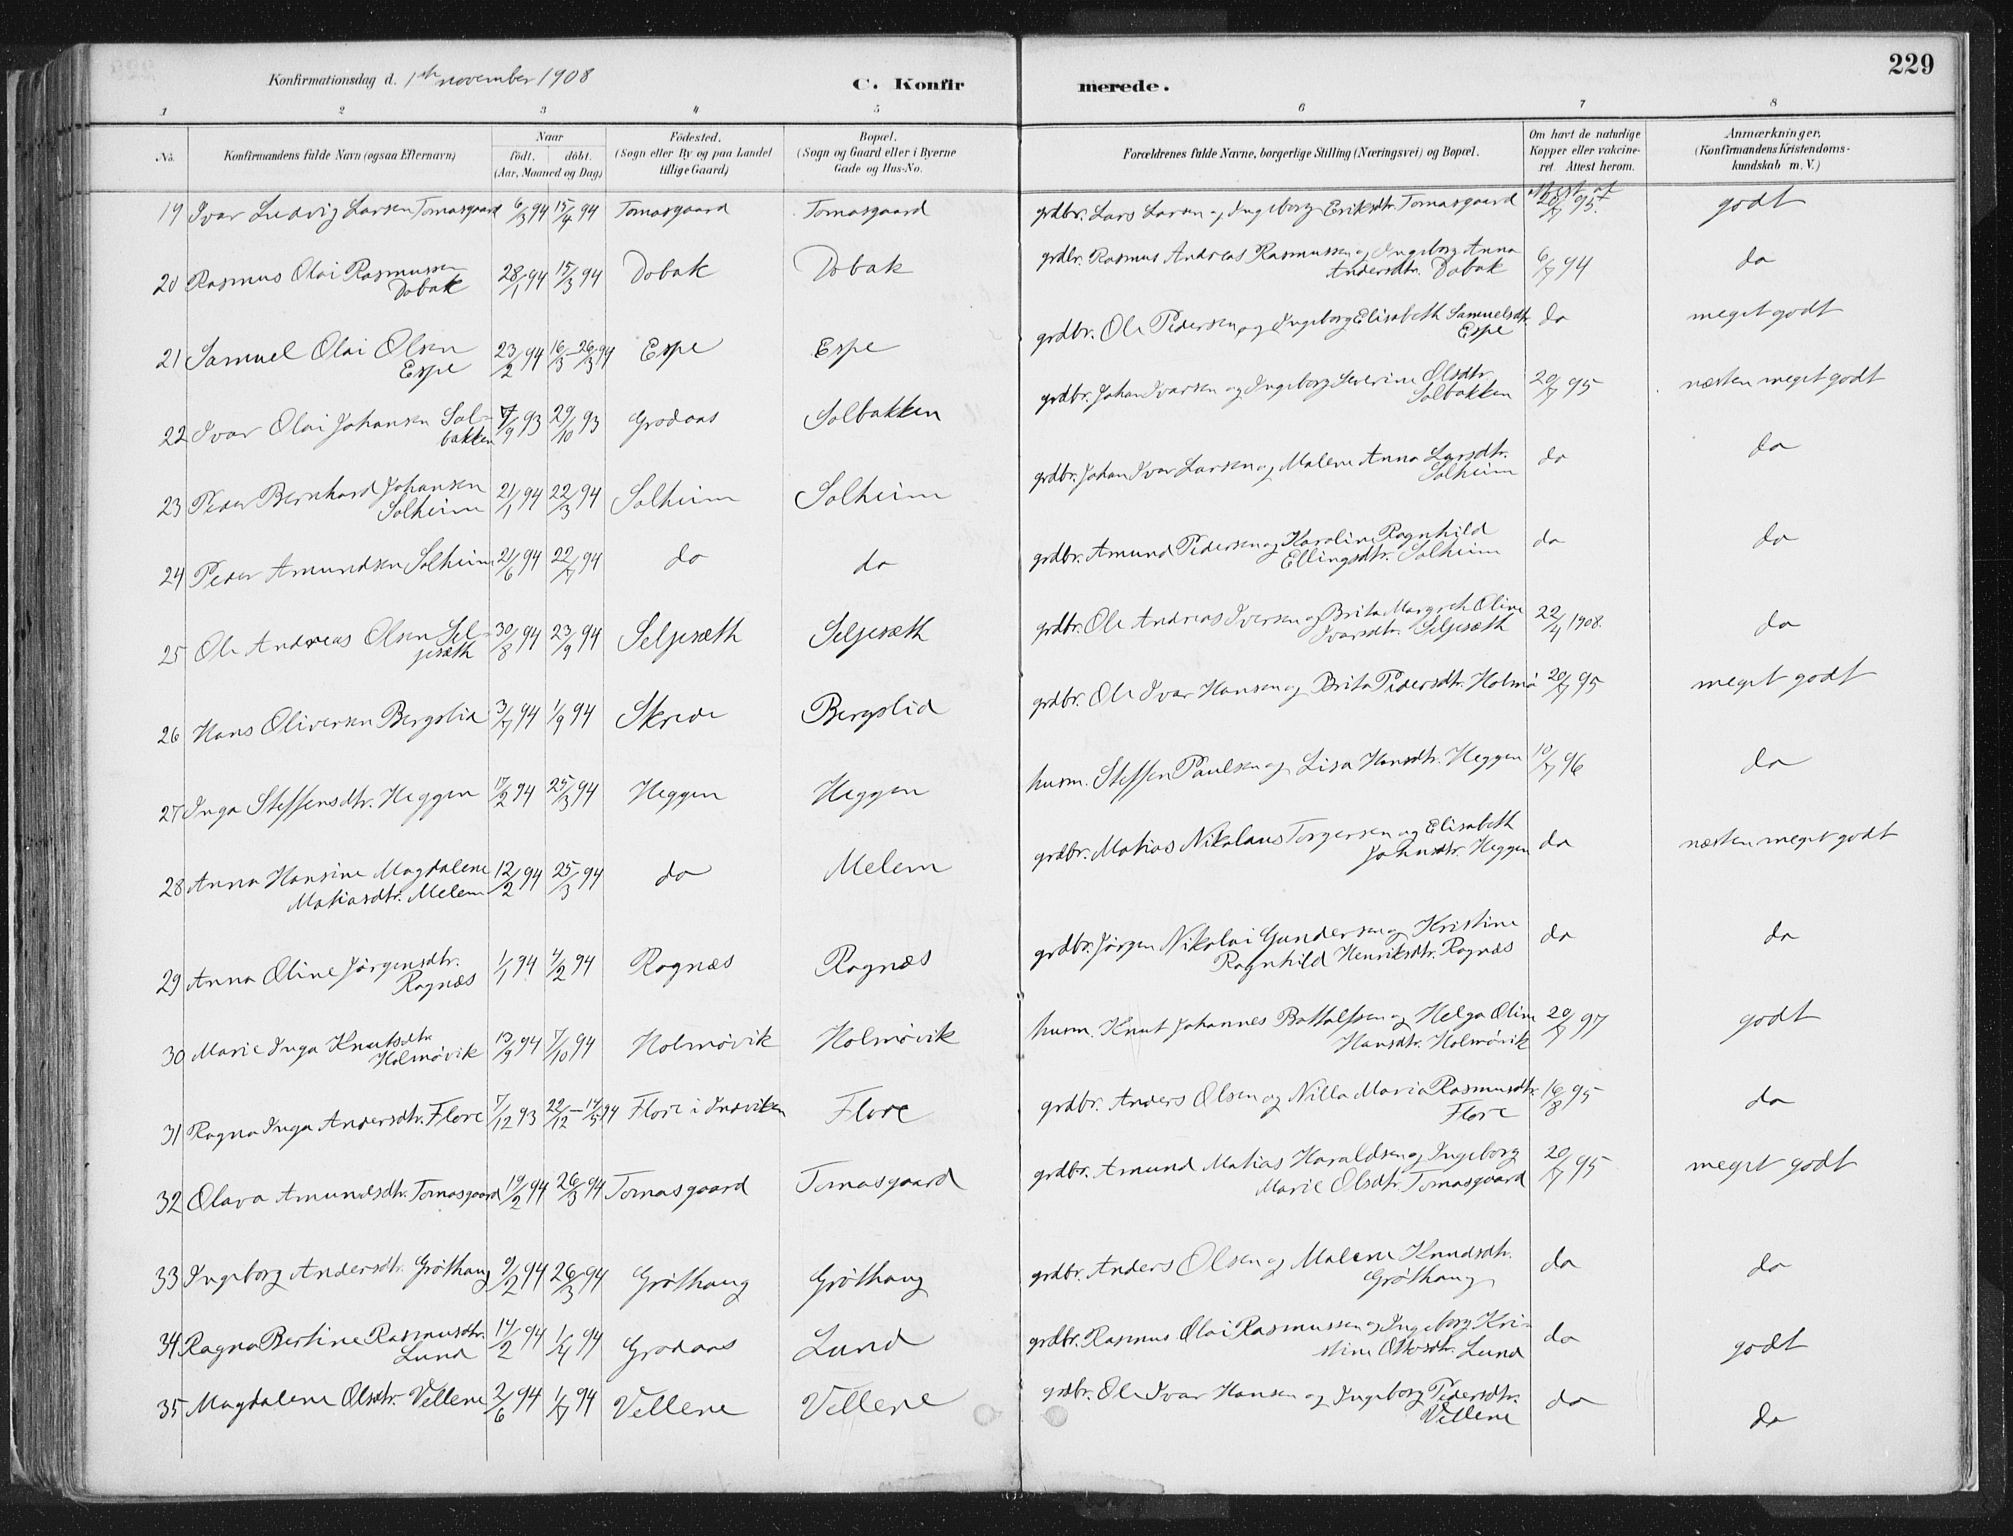 229
Konfirmationsdag d. 1ste november 1908
C. Konfirmerede.
1 2 3 4 5 6 7 8
No. Konfirmandens fulde Navn (ogsaa Efternavn) Naar født. døbt. (Aar, Maaned og Dag) Fødested. (Sogn eller By og paa Landet tillige Gaard) Bopæl. (Sogn og Gaard eller i Byerne Gade og Hus-No. Forældrenes fulde Navne, borgerlige Stilling (Næringsvei) og Bopæl. Om havt de naturlige Kopper eller vakcineret. Attest herom. Anmærkninger. (Konfirmandens Kristendomskundskab m. V.)
19 Ivar Ludvig Larsen Tomasgaard 6/3 94 15/4 94 Tomasgaard Tomasgaard grdbr. Lars Larsen og Ingeborg Eriksdtr. Tomasgaard attest af 20/7 95. godt
20 Rasmus Olai Rasmussen Dobak 28/1 94 15/3 94 Dobak Dobak grdbr. Rasmus Andreas Rasmussen og Ingeborg Anna Andersdtr. Dobak 6/7 94 do
21 Samuel Olai Olsen Espe 23/2 94 16/3 - 26/3 94 Espe Espe grdbr. Ole Pedersen og Ingeborg Elisabeth Samuelsdtr. Espe do meget godt
22 Ivar Olai Johansen Solbakken 7/9 93 29/10 93 Grodaas Solbakken grdbr. Johan Ivarsen og Ingeborg Severine Olsdtr. Solbakken 20/7 95 næsten meget godt
23 Peder Bernhard Johansen Solheim 21/1 94 22/3 94 Solheim Solheim grdbr. Johan Ivar Larsen og Malene Anna Larsdtr. Solheim do do
24 Peder Amundsen Solheim 21/6 94 22/7 94 do do grdbr. Amund Pedersen og Karoline Ragnhild Ellingsdtr. Solheim do do
25 Ole Andreas Olsen Seljesæth 30/8 94 23/9 94 Seljesæth Seljesæth grdbr. Ole Andreas Iversen og Brita Margreth Oline Ivarsdtr. Seljesæth 22/4 1908. do
26 Hans Oliversen Bergslid 3/7 94 1/9 94 Skrede Bergslid grdbr. Ole Ivar Hansen og Brita Pedersdtr. Holmø 20/7 95 meget godt
27 Inga Steffensdtr. Heggen 17/2 94 25/3 94 Heggen Heggen husm. Steffen Paulsen og Lisa Hansdtr. Heggen 10/7 96 do
28 Anna Hansine Magdalene Matiasdtr. Melem 12/2 94 25/3 94 do Melem grdbr. Matias Nikolaus Torgersen og Elisabeth Johnsdtr. Heggen do næsten meget godt
29 Anna Oline Jørgensdtr. Rognæs 1/1 94 4/2 94 Rognæs Rognæs grdbr. Jørgen Nikolai Gundersen og Kristine Ragnhild Henriksdtr. Rognæs do do
30 Marie Inga Knutsdtr Holmøvik 13/9 94 7/10 94 Holmøvik Holmøvik husm. Knut Johannes Bottolfsen og Helga Oline Hansdtr. Holmøvik 20/7 97 godt
31 Ragna Inga Andersdtr. Flore 7/12 93 22/12 - 14/5 94 Flore i Indviken Flore grdbr. Anders Olsen og Nilla Maria Rasmusdtr. Flore 16/8 95 do
32 Olava Amundsdtr. Tomasgaard 19/2 94 26/3 94 Tomasgaard Tomasgaard grdbr. Amund Matias Haraldsen og Ingeborg Marie Olsdtr. Tomasgaard 20/7 95 meget godt
33 Ingeborg Andersdtr. Grøthaug 9/2 94 26/3 94 Grøthaug Grøthaug grdbr. Anders Olsen og Malene Knudsdtr. Grøthaug do do
34 Ragna Bertine Rasmusdtr. Lund 14/2 94 1/4 94 Grodaas Lund grdbr. Rasmus Olai Rasmussen og Ingeborg Kristine Ottosdtr. Lund do godt
35 Magdalene Olsdtr. Vellene 2/6 94 1/7 94 Vellene Vellene grdbr. Ole Ivar Hansen og Ingeborg Pedersdtr. Vellene do do